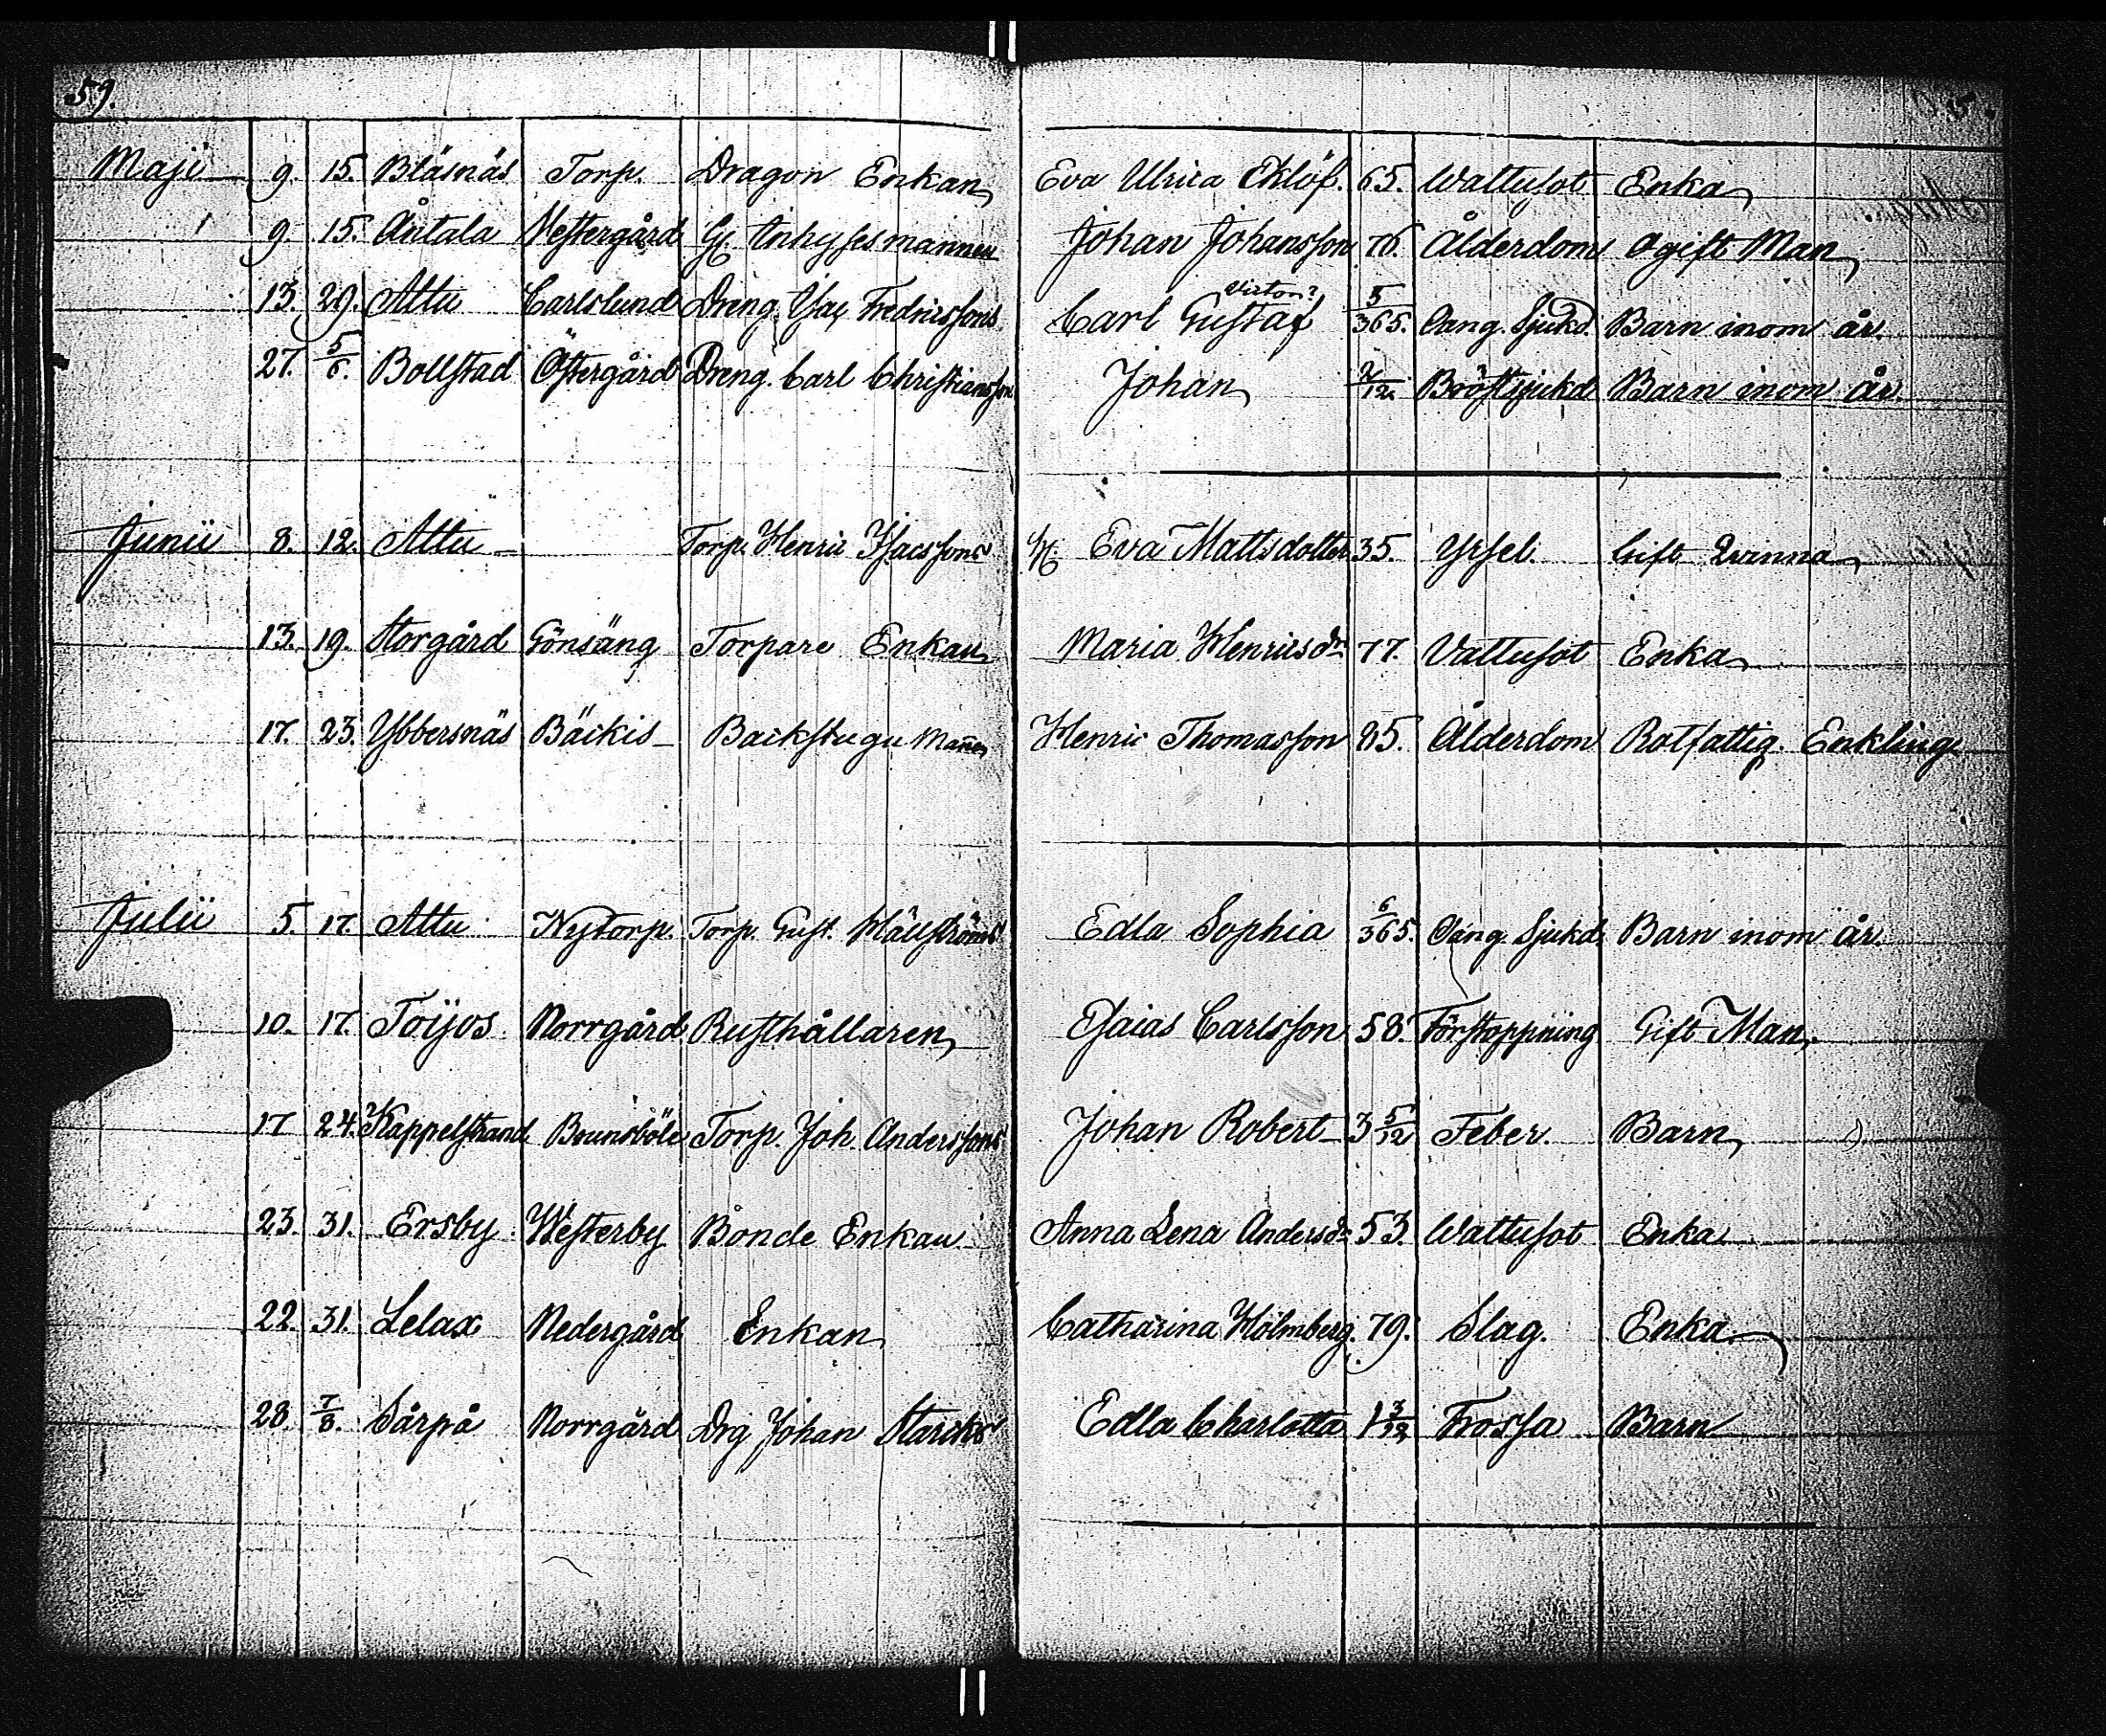 59.
Maji 9. 15. Bläsnäs Torp. Dragon Enkan Eva Ulrica Eklöf. 65. Wattusot Enka
9. 15. Åntala Westergård Gl. Inhysesmannen Johan Johansson 76. Ålderdom Ogift Man
13. 29. Attu Carlslund Dreng. Isac Fredricssons Carl Gustaf 5/365. Oang. Sjukd. Barn inom år.
27. 5/6. Bollstad Östergård Dreng. Carl Christiansson Johan 2/12. Bröstsjukd Barn inom år.
Junii 8. 12. Attu Torp. Henric Isacssons H. Eva Mattsdotter 35. Yrsel. Gift Qvinna
13. 19. Storgård Gönsäng Torpare Enkan Maria Henricsdr 77. Vattusot Enka
17. 23. Ybbersnäs Bäckis Backstugu Mañen Henric Thomasson 85. Ålderdom Rotfattig Enkling
Julii 5. 17. Attu Nytorp. Torp. Gust. Edla Sophia 6/365. Oang. Sjukd. Barn inom år.
10. 17. Toijos Norrgård Rusthållaren Esaias Carlsson 58. Förstoppning Gift Man.
17 24. Kappelstrand Brunsböle Torp. Joh. Anderssons Johan Robert 3 5/12 Feber. Barn
23. 31. Ersby Westerby Bonde Enkan Anna Lena Andersdr 53. Wattusot Enka
22. 31. Lelax Nedergård Enkan Catharina Holmberg. 79. Slag. Enka
28. 7/8. Särpå Norrgård Drg Johan Starcks Edla Charlotta 1 3/12 Frossa Barn